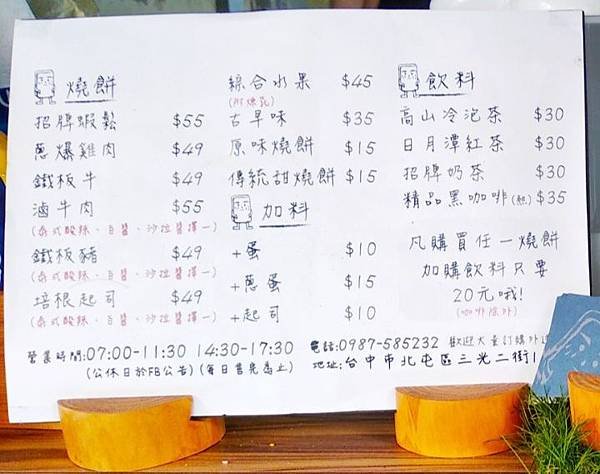 燒餅
招牌蝦鬆 $55
蔥爆雞肉 $49
鐵板牛 $49
滷牛肉 $55
(泰式酸辣、白醬、沙拉醬擇一)
鐵板豬 $49
(泰式酸辣、白醬、沙拉醬擇一)
培根起司 $49
(泰式酸辣、白醬、沙拉醬擇一)
綜合水果 $45
(附煉乳)
古早味 $35
原味燒餅 $15
傳統甜燒餅 $15
加料
+蛋 $10
+蔥蛋 $15
+起司 $10
飲料
高山冷泡茶 $30
日月潭紅茶 $30
招牌奶茶 $30
精品黑咖啡(熱) $35
凡購買任一燒餅
加購飲料只要
20元哦!
(咖啡除外)
營業時間:07:00-11:30 14:30-17:30
(公休日於FB公告)(每日售完為止)
電話:0987-585232 歡迎大量訂購外送
地址:台中市北屯區三光二街1